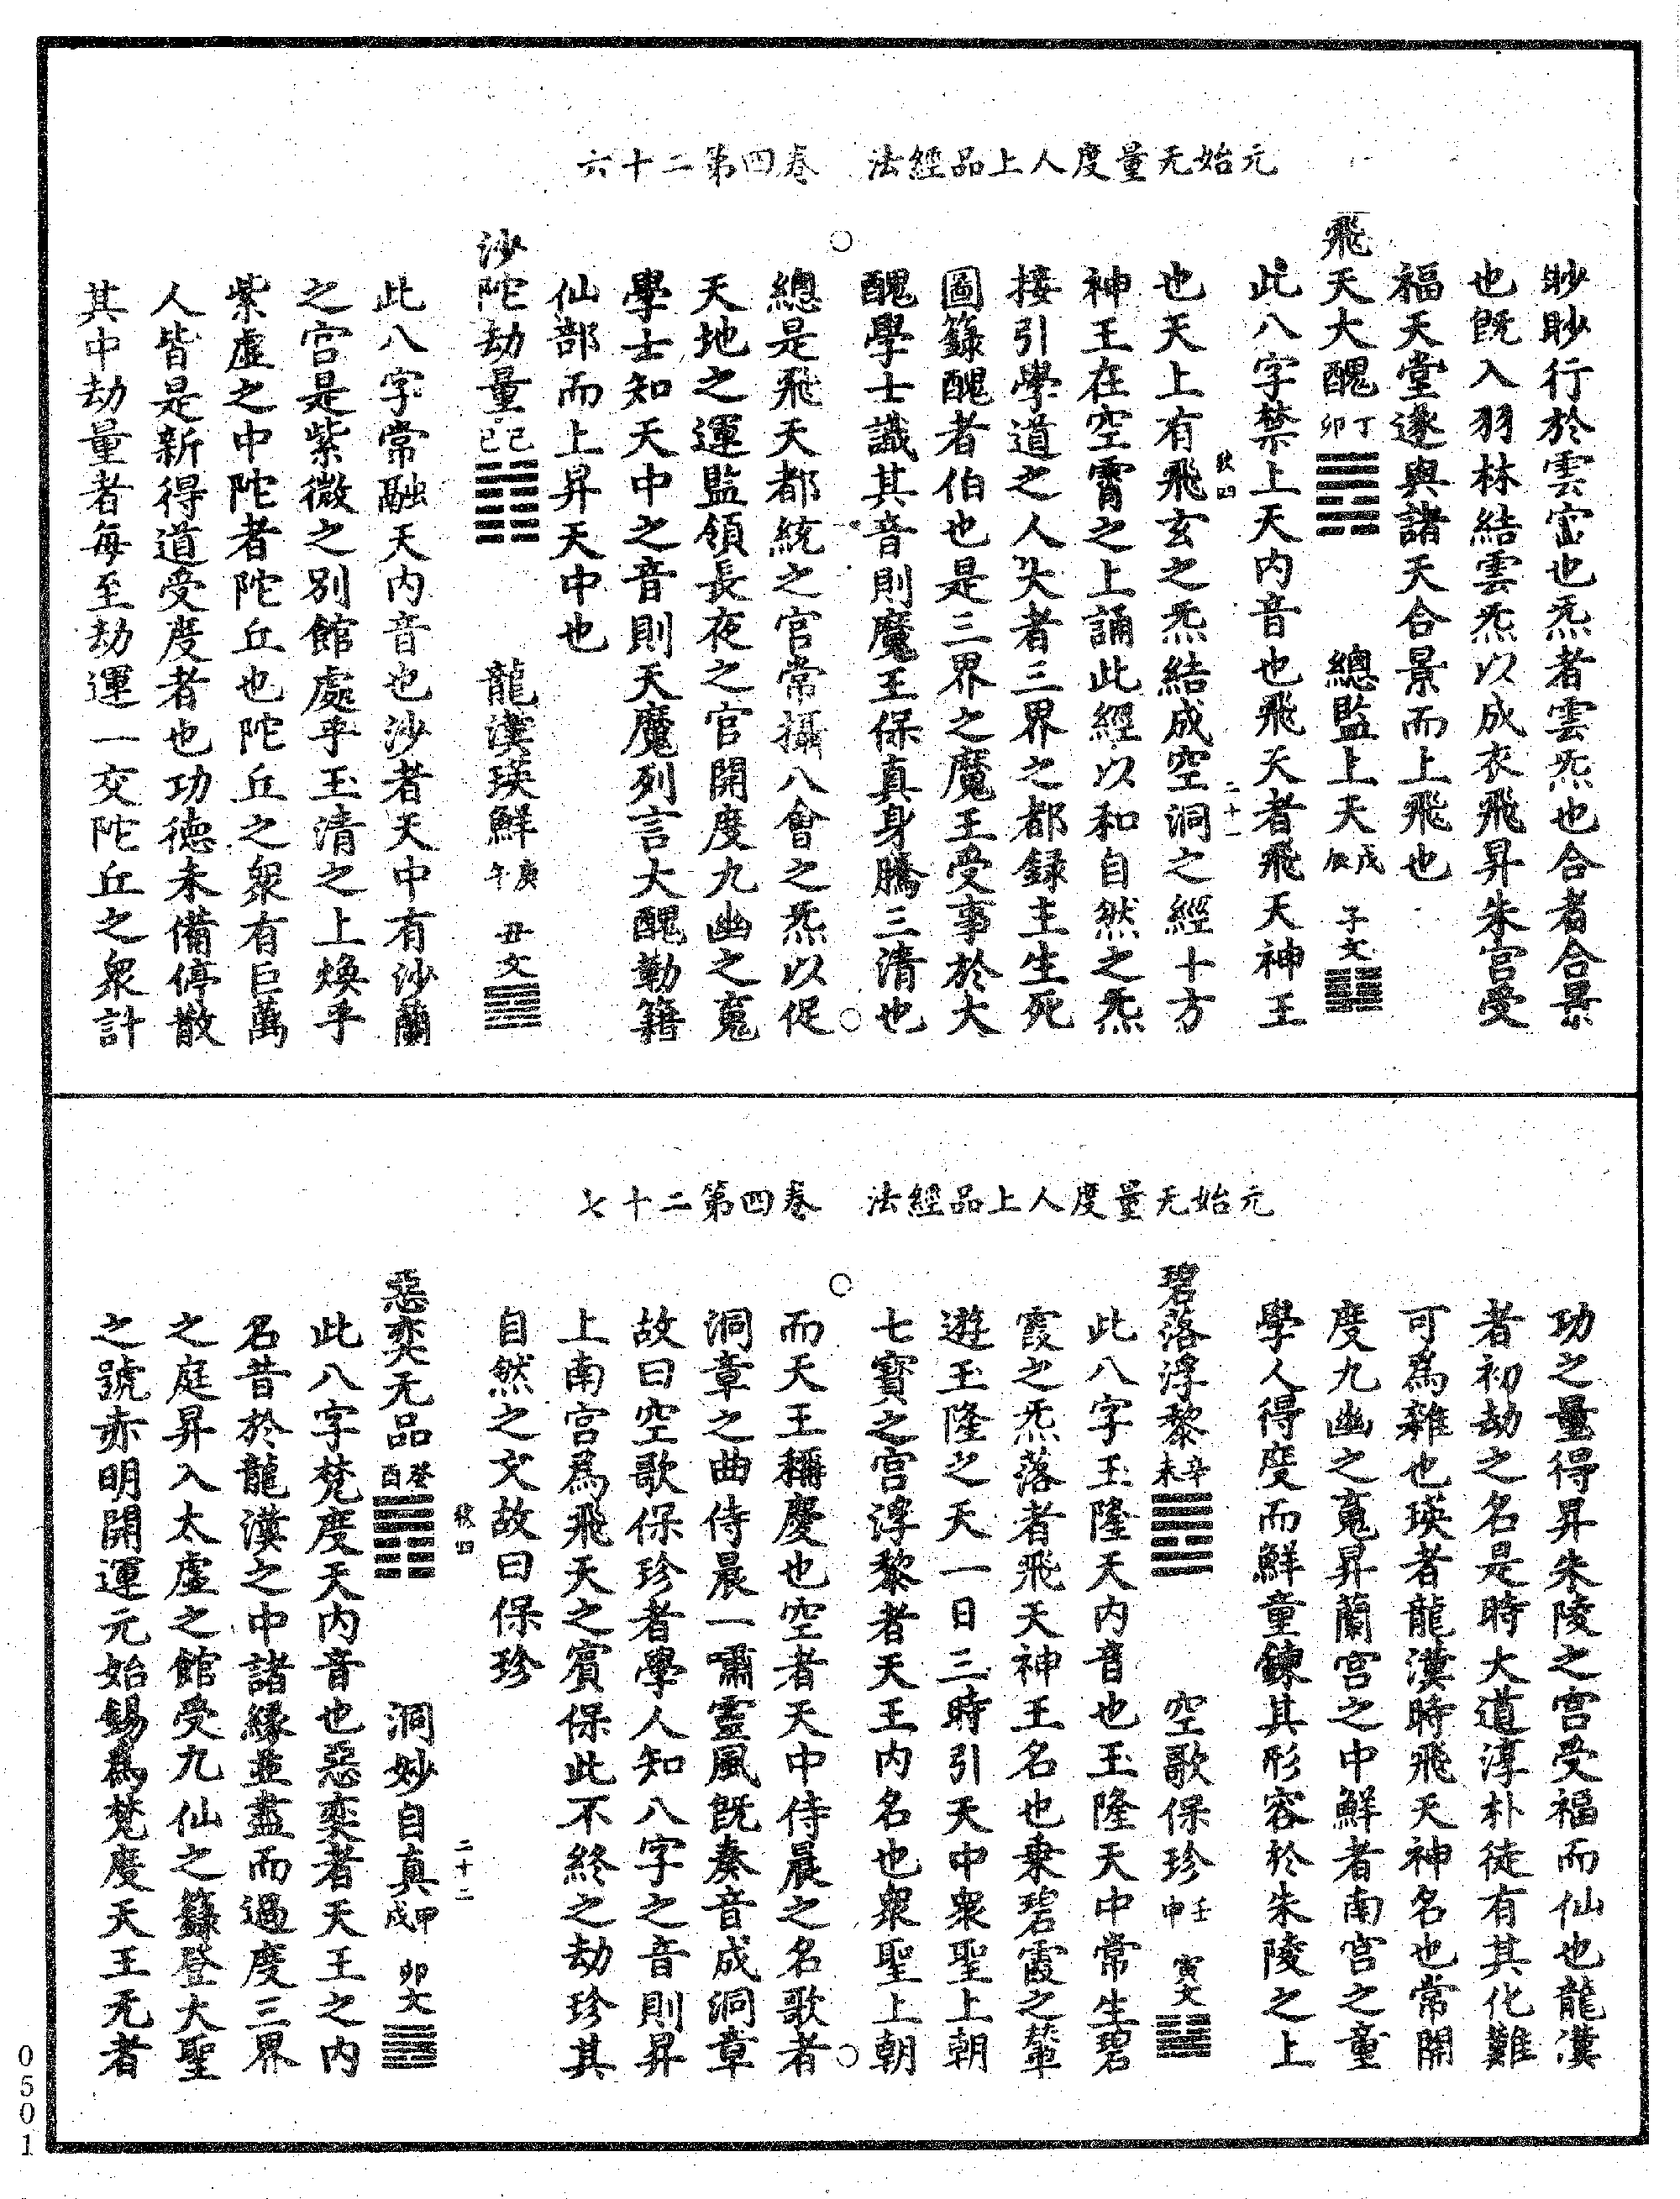 元始无量度人上品經法　卷四第二十六
眇眇行於雲宓也炁者雲炁也合者合景
也旣入羽林結雲炁以成衣飛昇朱宮受
福天堂遂與諸天合景而上飛也
飛天大醜丁卯　總監上天戊辰　子文
此八字禁上天内音也飛天者飛天神王
狄四　二十一
也天上有飛玄之炁結成空洞之經十方
神王在空霄之上誦此經以和自然之炁
接引學道之人大者三界之都録主生死
圖籙醜者伯也是三界之魔王受事於大
醜學士識其音則魔王保真身騰三清也
總是飛天都統之官常攝八會之炁以促
天地之運監領長夜之官開度九幽之䰟
學士知天中之音則天魔列言大醜勒籍
仙部而上昇天中也
沙陀劫量己巳　龍漢瑛鮮庚午　丑文
此八字常融天内音也沙者天中有沙蘭
之宮是紫微之別館處乎玉清之上煥乎
紫虛之中陀者陀丘也陀丘之衆有巨萬
人皆是新得道受度者也功德未備停散
其中劫量者每至劫運一交陀丘之衆計
元始无量度人上品經法　卷四第二十七
功之量得昇朱陵之宮受福而仙也龍漢
者初劫之名是時大道淳朴徒有其化難
可爲雜也瑛者龍漢時飛天神名也常開
度九幽之䰟昇蘭宮之中鮮者南宮之童
學人得度而鮮童鍊其形容於朱陵之上
碧落浮黎辛未　空歌保珍壬申　寅文
此八字玉隆天内音也玉隆天中常生碧
霞之炁落者飛天神王名也乘碧霞之輦
遊玉隆之天一日三時引天中衆聖上朝
七寶之宮浮黎者天王内名也衆聖上朝
而天王稱慶也空者天中侍晨之名歌者
洞章之曲侍晨一嘯靈風旣奏音成洞章
故曰空歌保珍者學人知八字之音則昇
上南宮爲飛天之賓保此不終之劫珍其
自然之文故曰保珍
狄四　二十二
惡奕无品癸酉　洞妙自真甲戌　卯文
此八字梵度天内音也惡奕者天王之内
名昔於龍漢之中諸縁並盡而過度三界
之庭昇入太虛之館受九仙之籙登大聖
之號赤明開運元始錫爲梵度天王无者
0501